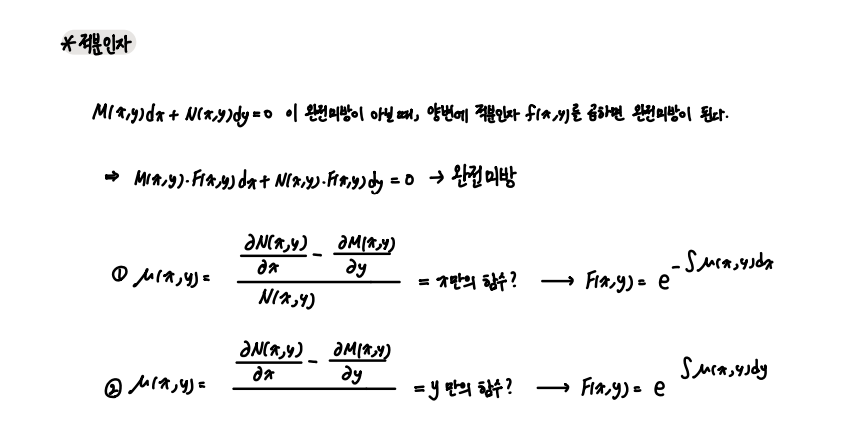 * 적분인자
M(x,y)dx + N(x,y)dy = 0 이 완전미방이 아닐때, 양변에 적분인자 f(x,y)를 곱하면 완전미방이 된다.
⇒ M(x,y)·F(x,y)dx + N(x,y)·F(x,y)dy = 0 → 완전미방
① μ(x,y) = (∂N(x,y)/∂x - ∂M(x,y)/∂y) / N(x,y) = x만의 함수? → F(x,y) = e^(-∫μ(x,y)dx)
② μ(x,y) = (∂N(x,y)/∂x - ∂M(x,y)/∂y) / = y만의 함수? → F(x,y) = e^(∫μ(x,y)dy)